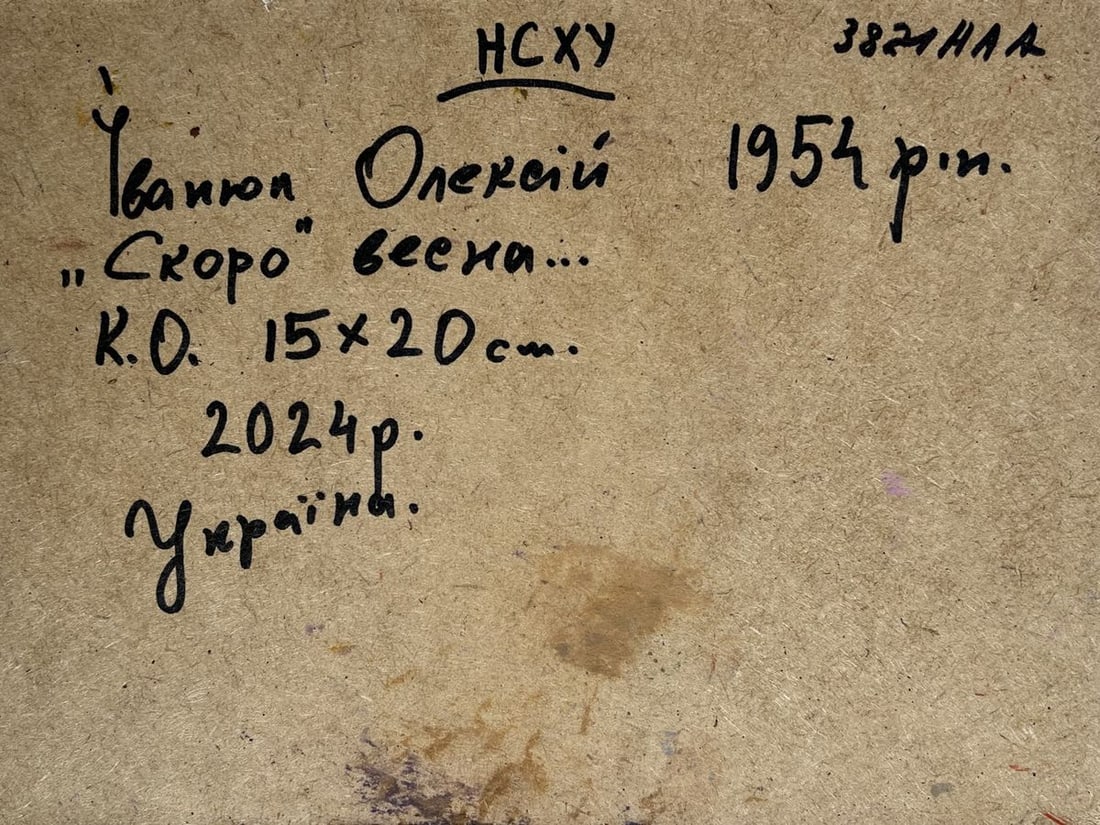 НСХУ 3821НАА
Іванюп Олексій 1954 р.н.
„Скоро" весна...
К.О. 15×20 см.
2024р.
Україна.